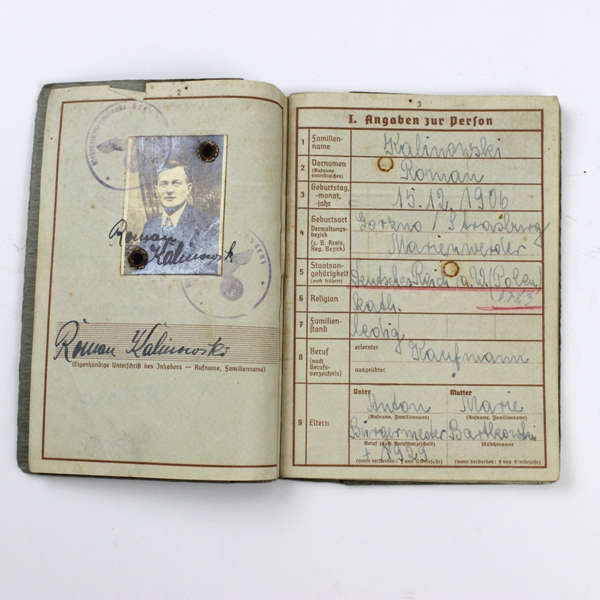 2
Roman
Kalinowsk
Roman Kalinowski
(Eigenhändige Unterschrift des Inhabers — Rufname, Familienname)
3
I. Angaben zur Person
1 Familien-
name
Kalinowski
2 Vornamen
(Rufname
unterstreichen)
Roman
3 Geburtstag,
-monat,
-jahr
15.12.1906
4 Geburtsort
Verwaltungs-
bezirk
(z. B. Kreis,
Reg. Bezirk)
Gorzno / Strasburg/
Marienwerder
5 Staatsan-
gehörigkeit
(auch frühere)
Deutsches Reich a. W. (Polen)
6 Religion
kath.
7 Familien-
stand
ledig
8 Beruf
(nach
Berufs-
verzeichnis)
erlernter
Kaufmann
ausgeübter
9 Eltern
Vater Mutter
Anton Marie
(Rufname, Familienname) (Rufname, Familienname)
Bürgermeister Bartkowski
Beruf (nach Berufsverzeichnis) Mädchenname
† 1929
(wenn verstorben: † und Sterbejahr) (wenn verstorben: † und Sterbejahr)